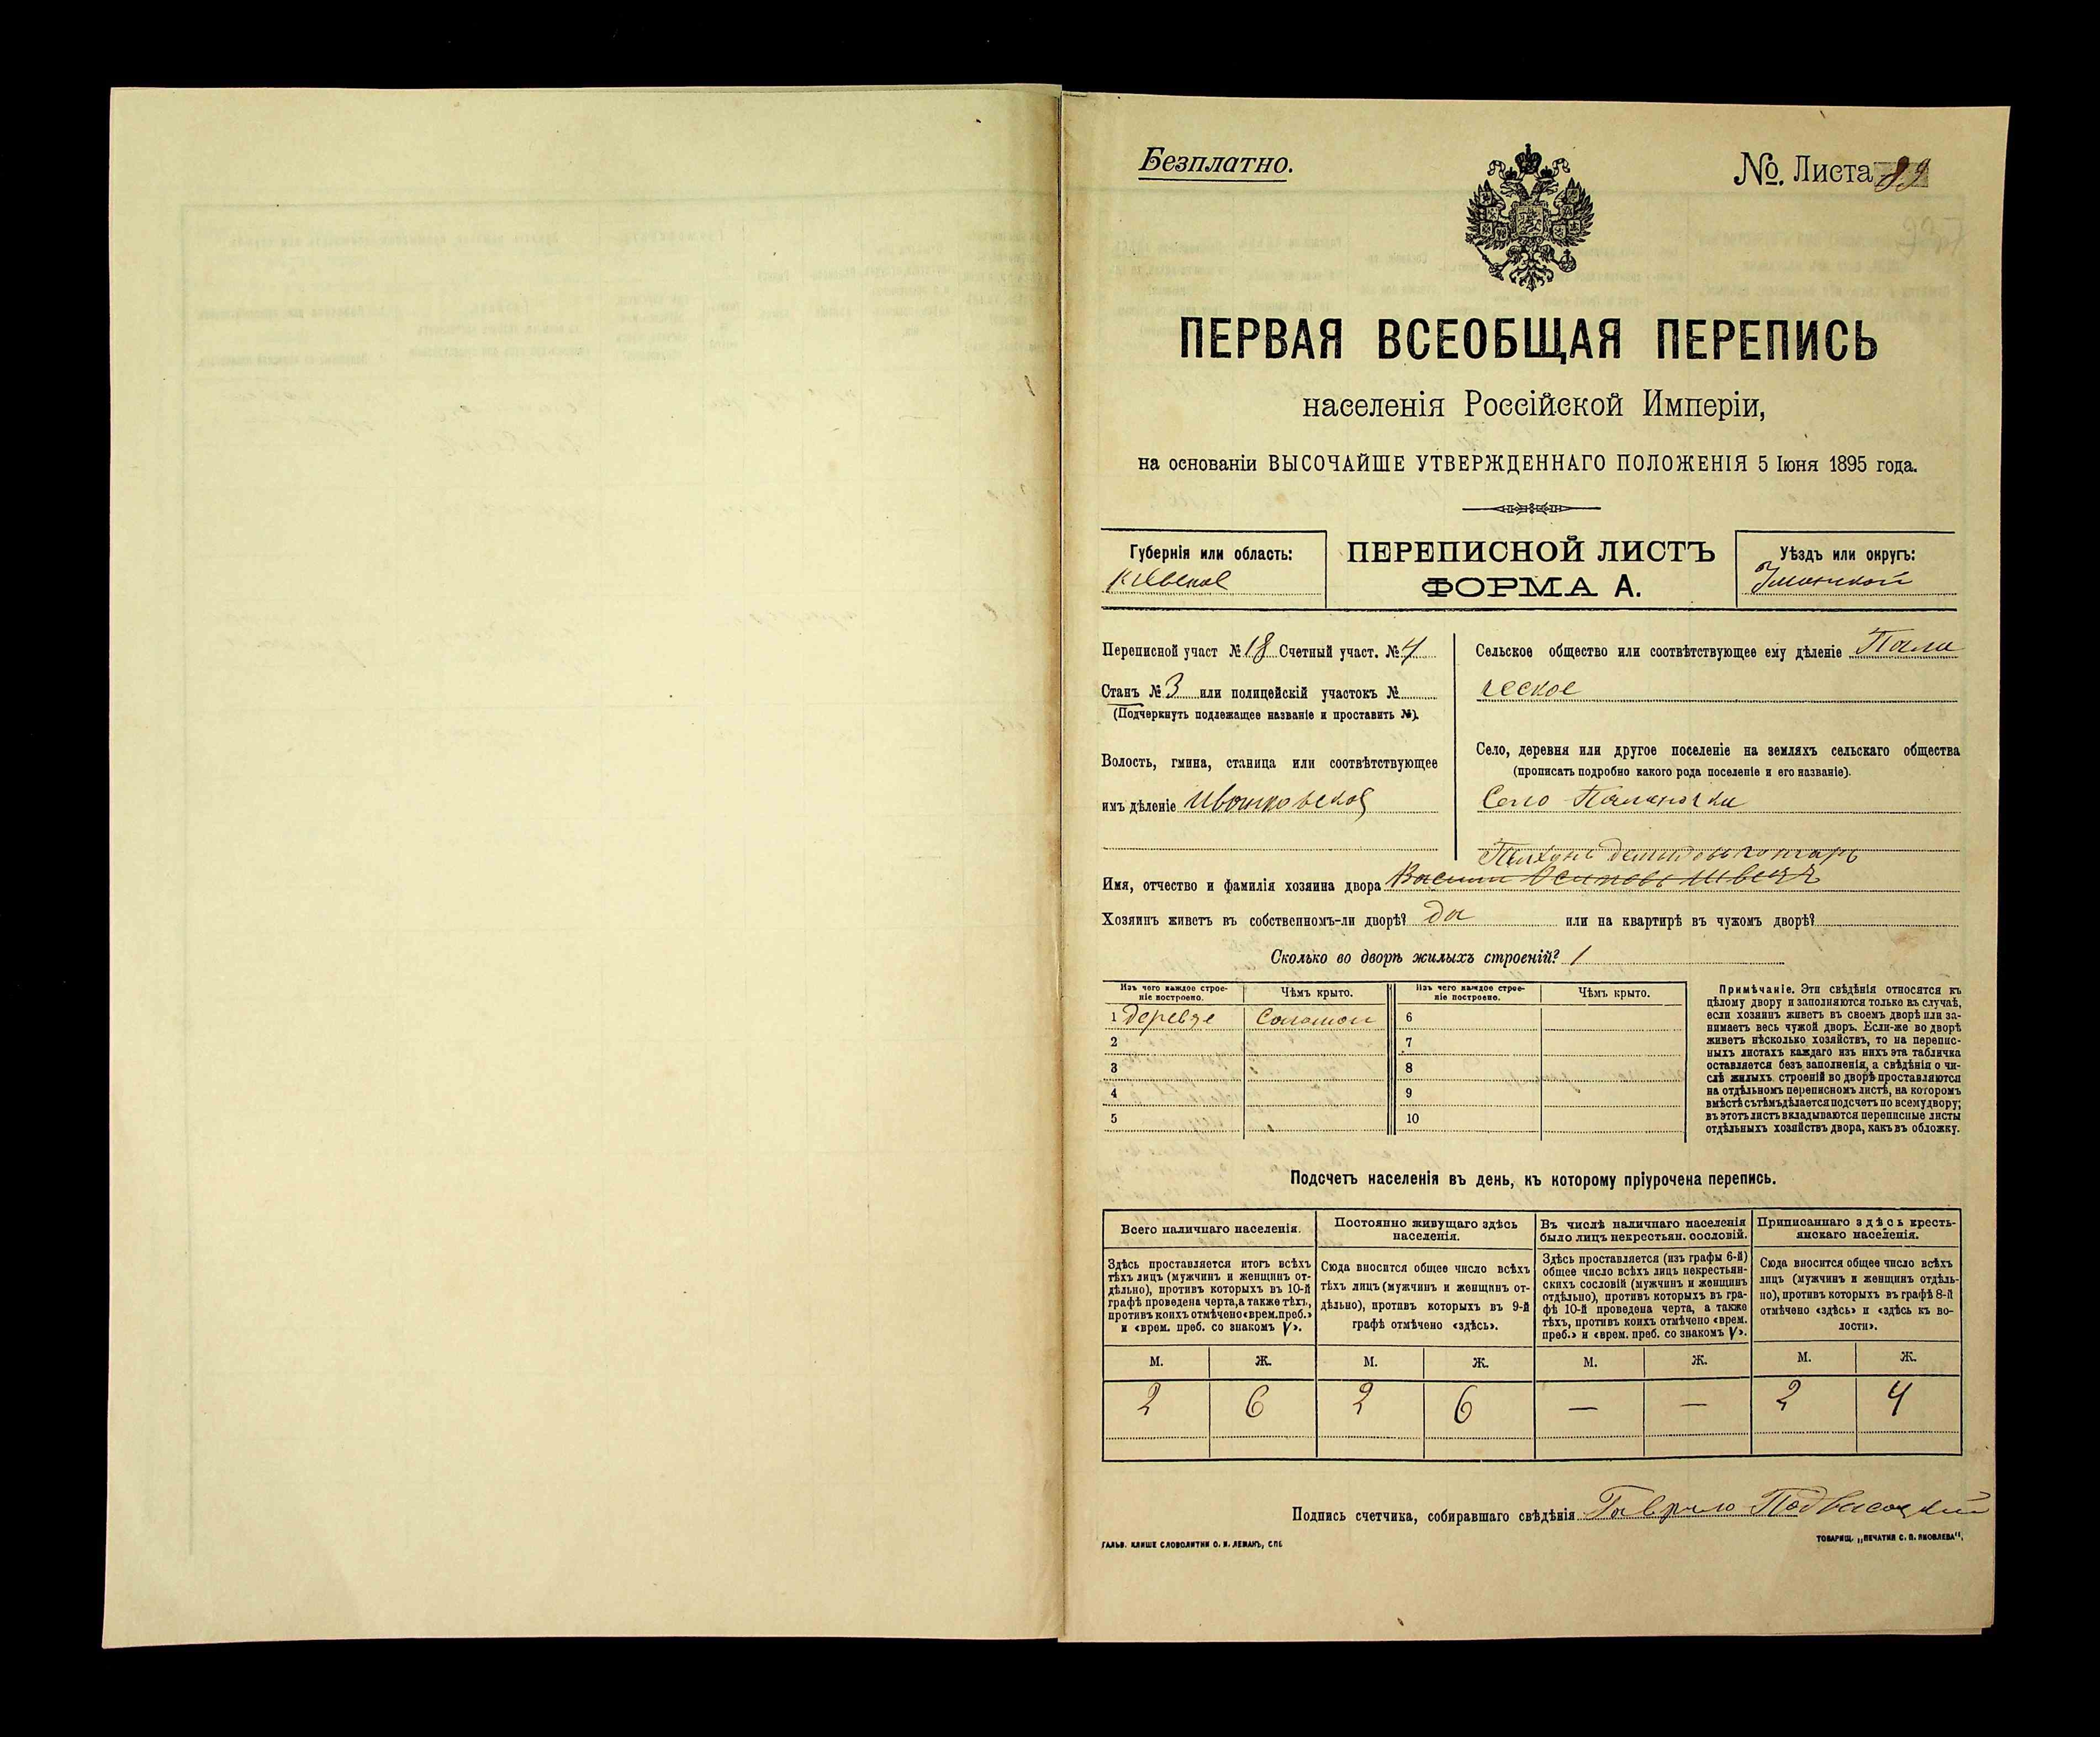 Безплатно.
№. Листа 89
ПЕРВАЯ ВСЕОБЩАЯ ПЕРЕПИСЬ
населенія Россійской Имперіи,
на основаніи ВЫСОЧАЙШЕ УТВЕРЖДЕННАГО ПОЛОЖЕНІЯ 5 Іюня 1895 года.
Губернія или область:
Кіевская
ПЕРЕПИСНОЙ ЛИСТЪ
ФОРМА А.
Уѣздъ или округъ:
Уманской
Переписной участ № 18 Счетный участ. № 4
Станъ № 3 или полицейскій участокъ №
(Подчеркнуть подлежащее названіе и проставить №).
Волость, гмина, станица или соотвѣтствующее
имъ дѣленіе
Сельское общество или соотвѣтствующее ему дѣленіе
Село, деревня или другое поселеніе на земляхъ сельскаго общества
(прописать подробно какого рода поселеніе и его названіе).
Село
Имя, отчество и фамилія хозяина двора
Хозяинъ живетъ въ собственномъ-ли дворѣ? да или на квартирѣ въ чужомъ дворѣ?
Сколько во дворѣ жилыхъ строеній? 1
Изъ чего каждое строе-
ніе построено.
Чѣмъ крыто.
Изъ чего каждое строе-
ніе построено.
Чѣмъ крыто.
1 Соломой 6
2 7
3 8
4 9
5 10
Примѣчаніе. Эти свѣдѣнія относятся къ
цѣлому двору и заполняются только въ случаѣ,
если хозяинъ живетъ въ своемъ дворѣ или за-
нимаетъ весь чужой дворъ. Если-же во дворѣ
живетъ нѣсколько хозяйствъ, то на перепис-
ныхъ листахъ каждаго изъ нихъ эта табличка
оставляется безъ заполненія, а свѣдѣнія о чи-
слѣ жилыхъ строеній во дворѣ проставляются
на отдѣльномъ переписномъ листѣ, на которомъ
вмѣстѣ съ тѣмъ дѣлается подсчетъ по всему двору;
въ этотъ листъ вкладываются переписные листы
отдѣльныхъ хозяйствъ двора, какъ въ обложку.
Подсчетъ населенія въ день, къ которому пріурочена перепись.
Всего наличнаго населенія.
Здѣсь проставляется итогъ всѣхъ
тѣхъ лицъ (мужчинъ и женщинъ от-
дѣльно), противъ которыхъ въ 10-й
графѣ проведена черта, а также тѣхъ,
противъ коихъ отмѣчено «врем. преб.»
и «врем. преб. со знакомъ V».
Постоянно живущаго здѣсь
населенія.
Сюда вносится общее число всѣхъ
тѣхъ лицъ (мужчинъ и женщинъ от-
дѣльно), противъ которыхъ въ 9-й
графѣ отмѣчено «здѣсь».
Въ числѣ наличнаго населенія
было лицъ некрестьян. сословій.
Здѣсь проставляется (изъ графы 6-й)
общее число всѣхъ лицъ некрестьян-
скихъ сословій (мужчинъ и женщинъ
отдѣльно), противъ которыхъ въ гра-
фѣ 10-й проведена черта, а также
тѣхъ, противъ коихъ отмѣчено «врем.
преб.» и «врем. преб. со знакомъ V».
Приписаннаго здѣсь кресть-
янскаго населенія.
Сюда вносится общее число всѣхъ
лицъ (мужчинъ и женщинъ отдѣль-
но), противъ которыхъ въ графѣ 8-й
отмѣчено «здѣсь» и «здѣсь къ во-
лости».
М. Ж. М. Ж. М. Ж. М. Ж.
2 6 2 6 — — 2 4
Подпись счетчика, собиравшаго свѣдѣнія Гаврило Подвысоцкій
ГАЛЬВ. КЛИШЕ СЛОВОЛИТНИ О. И. ЛЕМАНЪ, СПБ
ТОВАРИЩ. „ПЕЧАТНЯ С. П. ЯКОВЛЕВА“,